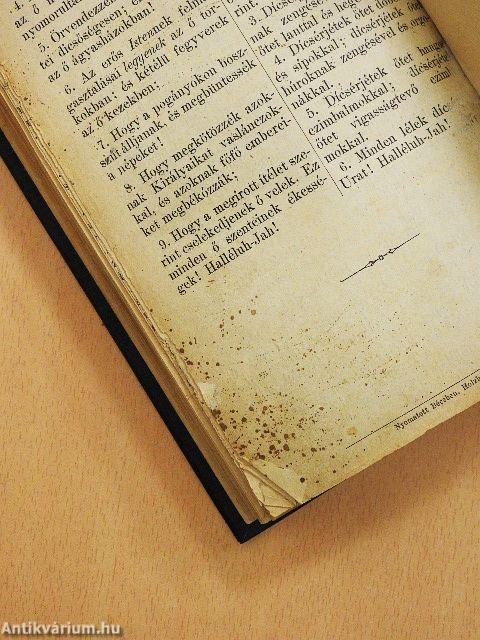 nyomorulta
5. Örvendezzen
tei dicsőségesen;
az ő ágyasházokban!
6. Az erős Istennek felma-
gasztalásai legyenek az ő tor-
kokban: és kétélű fegyverek
az ő kezekben;
7. Hogy a pogányokon bosz-
szút álljanak, és megbüntessék
a népeket!
8. Hogy megkötözzék azok-
nak Királyaikat vaslánczok-
kal, és azoknak főfő emberei-
ket megbékózzák;
9. Hogy a megirott ítélet sze-
rint cselekedjenek ő velek. Ez
minden ő szenteinek ékessé-
gek! Halléluh-Jah!
rint
3. Dicsér
nak zengésé
őtet lanttal és heged
4. Dicsérjétek őtet dobb
és sippal; dicsérjétek
húroknak zengésével és orgo
nákkal.
5. Dicsérjétek őtet hangos
czimbalmokkal; dicsérjéte
őtet vigasságtevő czimb
mokkal.
6. Minden lélek dics
Urat! Halléluh-Jah!
Nyomatott Bécsben, Holzh
Antikvárium.hu